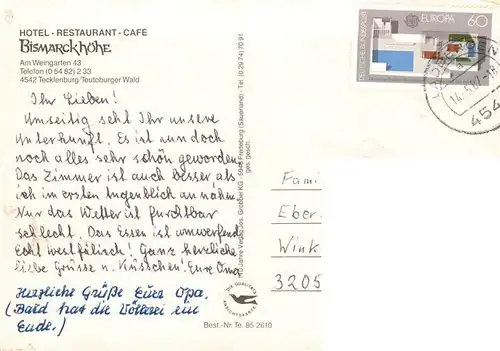 HOTEL - RESTAURANT - CAFÉ
Bismarckhöhe
Am Weingarten 43
Telefon (0 54 82) 2 33
4542 Tecklenburg/Teutoburger Wald
Ihr Lieben!
Umseitig seht Ihr unsere
Unterkunft. Es ist nun doch
noch alles sehr schön geworden.
Das Zimmer ist auch besser als
ich im ersten Augenblick an nahm.
Nur das Wetter ist furchtbar
schlecht. Das Essen ist umwerfend
Echt westfälisch! Ganz herzliche
liebe Grüsse u. Küsschen! Eure Oma
Herzliche Grüße Euer Opa.
(Bald hat die Völlerei ein
Ende.)
Jos. Grobbel KG - 5948 Fredeburg (Sauerland) - Tel. (0 29 74) 70 91
ges. gesch.
DIE QUALITÄTS
ANSICHTSKARTE
Best.-Nr. Te. 85-2610
DEUTSCHE BUNDESPOST
EUROPA 60
CEPT
454
Fami
Eber
Wink
3205